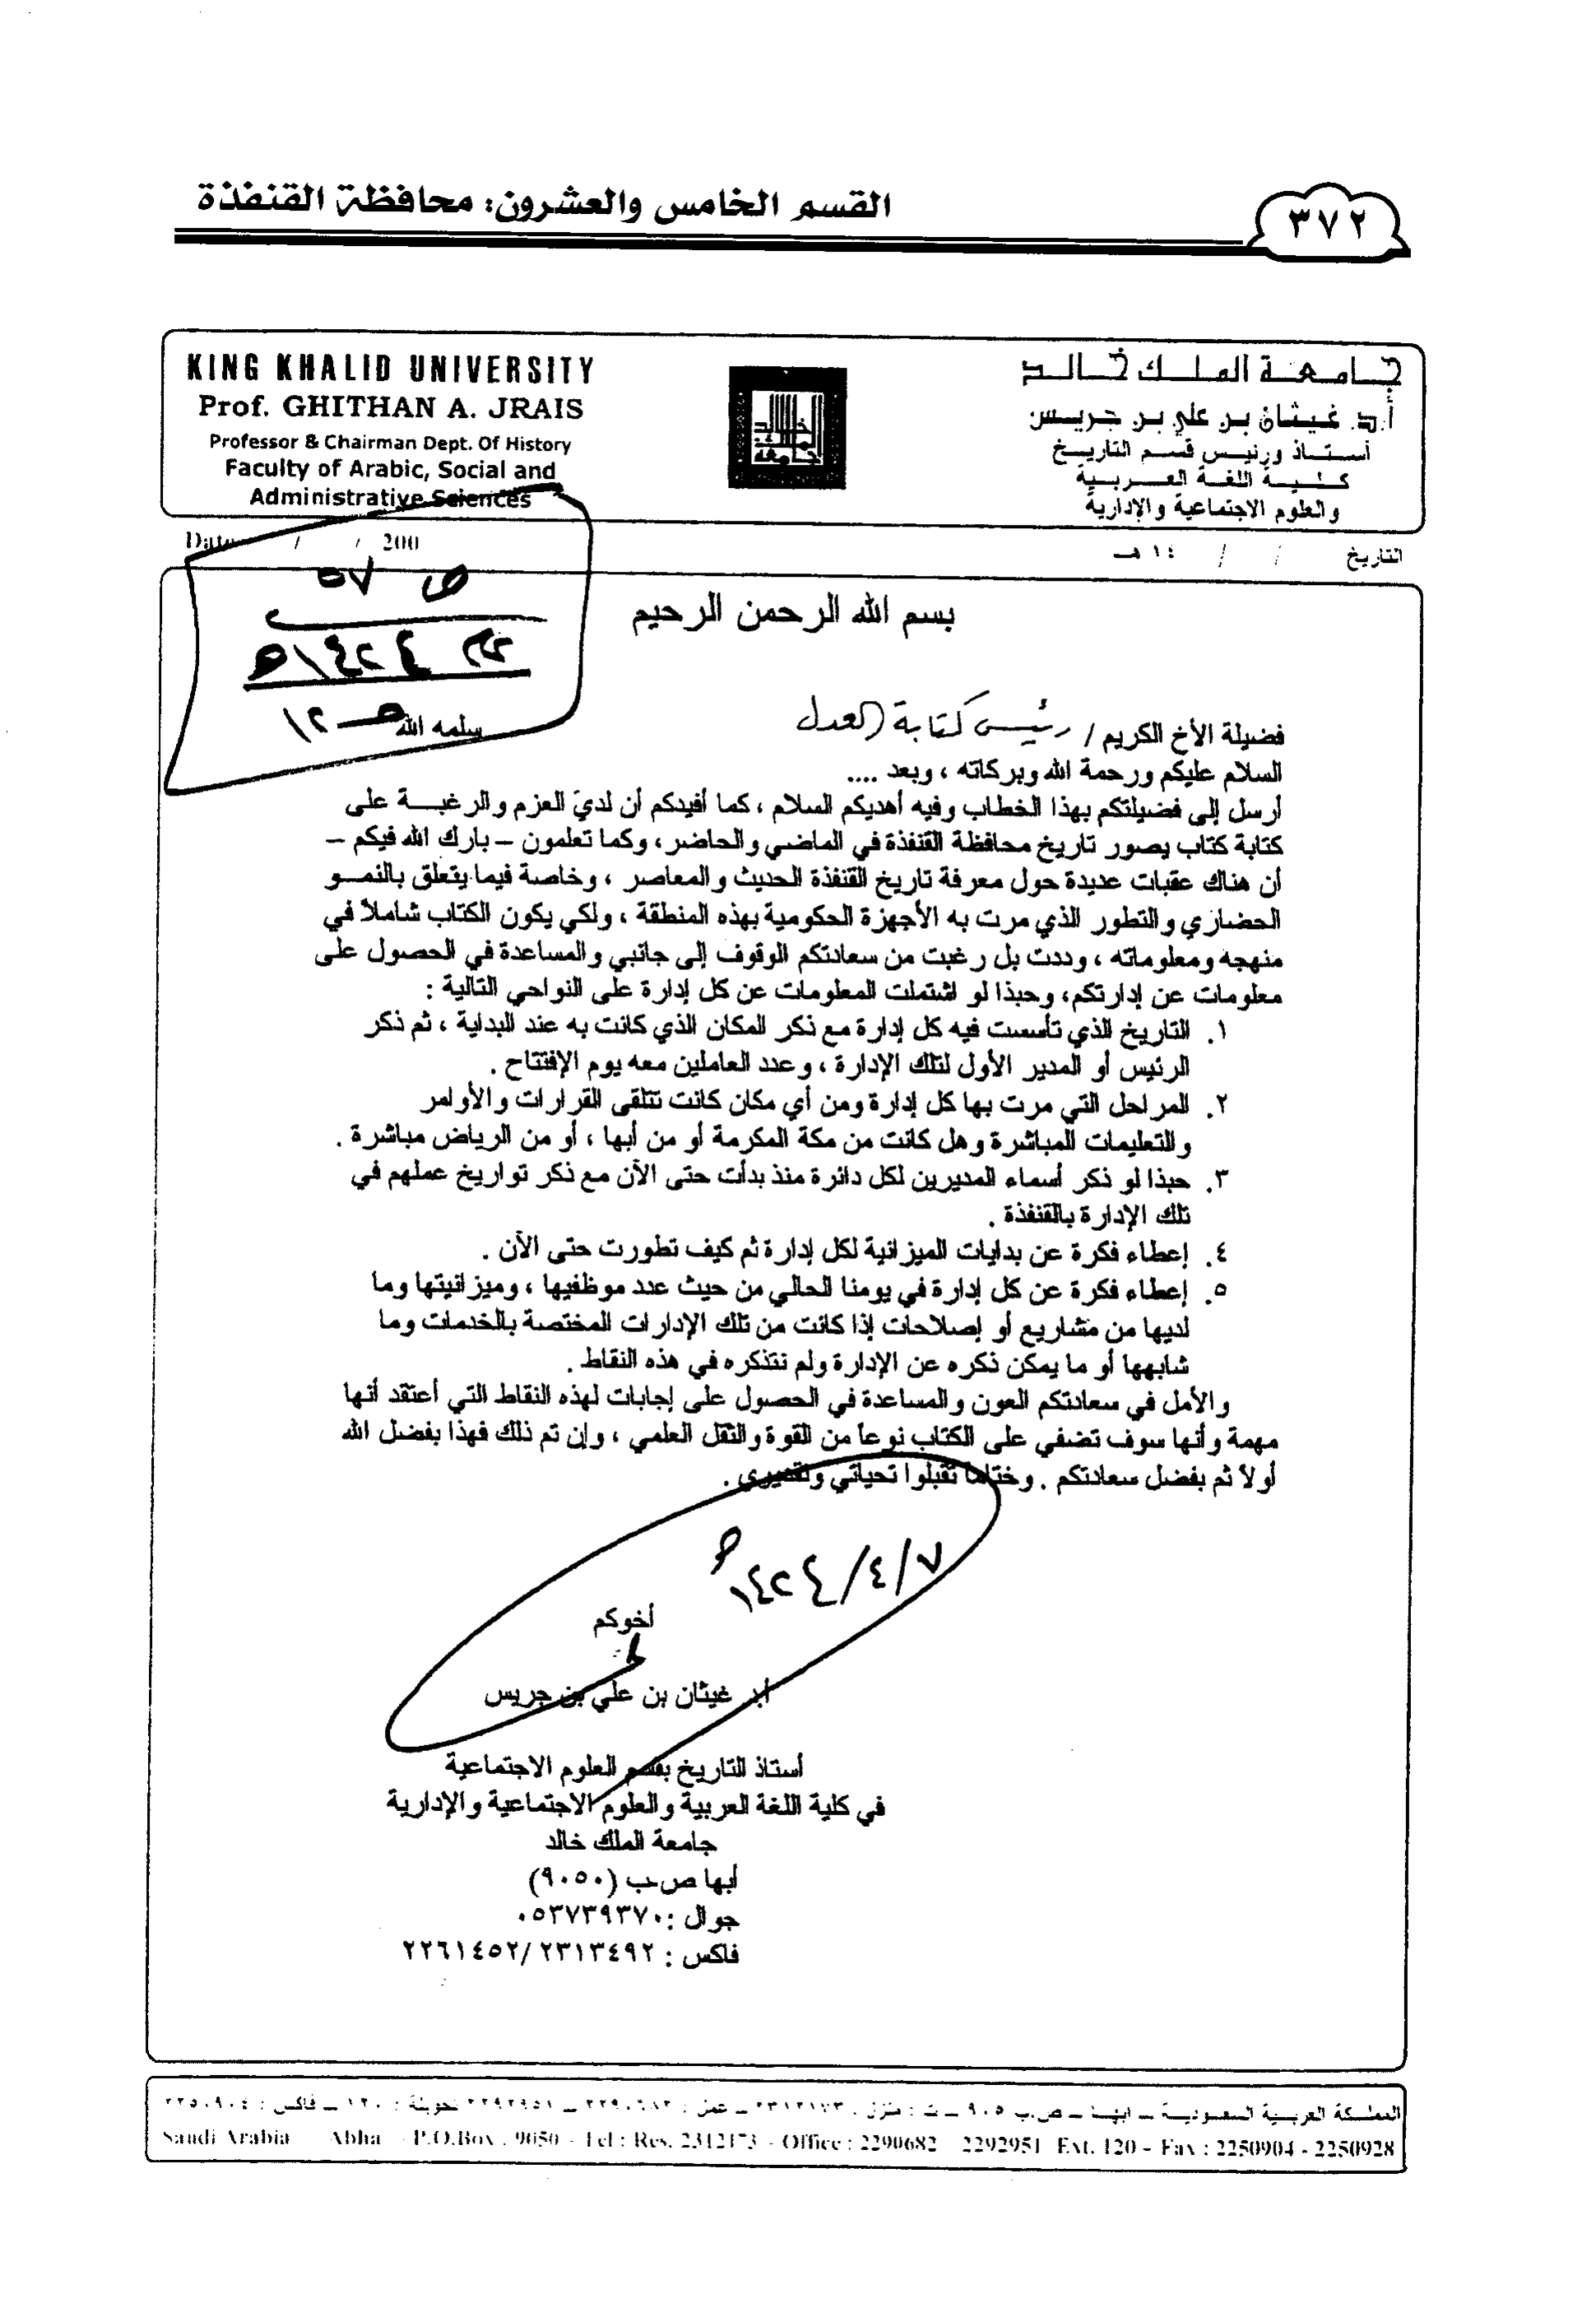 القسم الخامس والعشرون: محافظة القنفذة
٣٧٢
KING KHALID UNIVERSITY
Prof. GHITHAN A. JRAIS
Professor & Chairman Dept. Of History
Faculty of Arabic, Social and
Administrative Sciences
جامعة الملك خالد
أ.د. غيثان بن علي بن جريس
أستاذ ورئيس قسم التاريخ
كلية اللغة العربية
والعلوم الاجتماعية والإدارية
Date / / 200
التاريخ / / ١٤ هـ
ص ٥٧
١٤٢٤هـ
بسم الله الرحمن الرحيم
فضيلة الأخ الكريم / رئيس كتابة العدل سلمه الله
السلام عليكم ورحمة الله وبركاته ، وبعد ....
أرسل إلى فضيلتكم بهذا الخطاب وفيه أهديكم السلام ، كما أفيدكم أن لديَ العزم والرغبة على
كتابة كتاب يصور تاريخ محافظة القنفذة في الماضي والحاضر، وكما تعلمون – بارك الله فيكم –
أن هناك عقبات عديدة حول معرفة تاريخ القنفذة الحديث والمعاصر ، وخاصة فيما يتعلق بالنمو
الحضاري والتطور الذي مرت به الأجهزة الحكومية بهذه المنطقة ، ولكي يكون الكتاب شاملاً في
منهجه ومعلوماته ، وددت بل رغبت من سعادتكم الوقوف إلى جانبي والمساعدة في الحصول على
معلومات عن إدارتكم، وحبذا لو اشتملت المعلومات عن كل إدارة على النواحي التالية :
١. التاريخ الذي تأسست فيه كل إدارة مع ذكر المكان الذي كانت به عند البداية ، ثم ذكر
الرئيس أو المدير الأول لتلك الإدارة ، وعدد العاملين معه يوم الإفتتاح .
٢. المراحل التي مرت بها كل إدارة ومن أي مكان كانت تتلقى القرارات والأوامر
والتعليمات المباشرة وهل كانت من مكة المكرمة أو من أبها ، أو من الرياض مباشرة .
٣. حبذا لو ذكر أسماء المديرين لكل دائرة منذ بدأت حتى الآن مع ذكر تواريخ عملهم في
تلك الإدارة بالقنفذة .
٤. إعطاء فكرة عن بدايات الميزانية لكل إدارة ثم كيف تطورت حتى الآن .
٥. إعطاء فكرة عن كل إدارة في يومنا الحالي من حيث عدد موظفيها ، وميزانيتها وما
لديها من مشاريع أو إصلاحات إذا كانت من تلك الإدارات المختصة بالخدمات وما
شابهها أو ما يمكن ذكره عن الإدارة ولم نتذكره في هذه النقاط .
والأمل في سعادتكم العون والمساعدة في الحصول على إجابات لهذه النقاط التي أعتقد أنها
مهمة وأنها سوف تضفي على الكتاب نوعاً من القوة والثقل العلمي ، وإن تم ذلك فهذا بفضل الله
أولاً ثم بفضل سعادتكم . وختاماً تقبلوا تحياتي وتقديري .
٧/٤/١٤٢٤هـ
أخوكم
أ.د. غيثان بن علي بن جريس
أستاذ التاريخ بقسم العلوم الاجتماعية
في كلية اللغة العربية والعلوم الاجتماعية والإدارية
جامعة الملك خالد
أبها ص.ب (٩٠٥٠)
جوال : ٠٥٣٧٣٩٣٧٠
فاكس : ٢٣١٣٤٩٢/ ٢٢٦١٤٥٢
المملكة العربية السعودية – أبها – ص.ب ٩٠٥ – ت : منزل : ٢٣١٢١٧٣ – عمل : ٢٢٩٠٦٨٢ – ٢٢٩٢٩٥١ تحويلة : ١٢٠ – فاكس : ٢٢٥٠٩٠٤
Saudi Arabia Abha - P.O.Box . 9050 - Tel : Res. 2312173 - Office : 2290682 2292951 Ext. 120 - Fax : 2250904 - 2250928